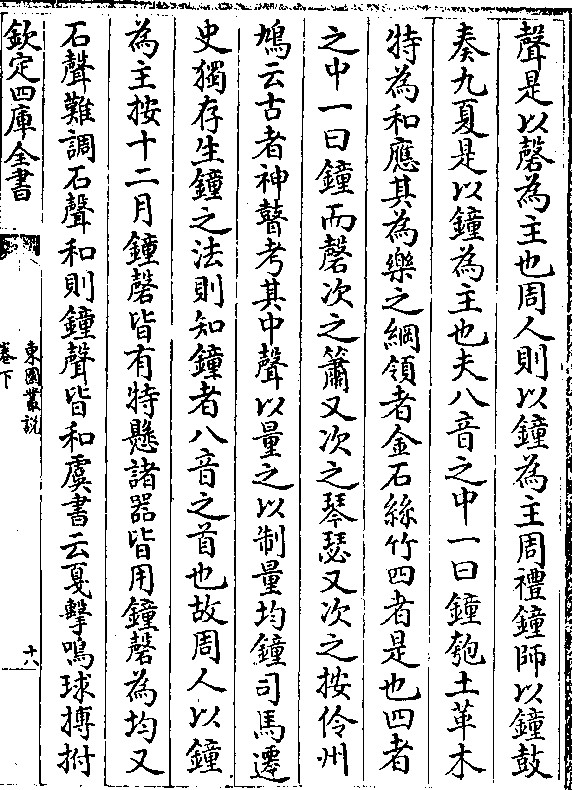 聲是以磬為主也周人則以鐘為主周禮鐘師以鐘鼓
奏九夏是以鐘為主也夫八音之中一曰鐘匏土革木
特為和應其為樂之綱領者金石絲竹四者是也四者
之中一曰鐘而磬次之簫又次之琴瑟又次之按伶州
鳩云古者神瞽考其中聲以量之以制量均鐘司馬遷
史獨存生鐘之法則知鐘者八音之首也故周人以鐘
為主按十二月鐘磬皆有特懸諸器皆用鐘磬為均又
石聲難調石聲和則鐘聲皆和虞書云戛擊鳴球搏拊
欽定四庫全書
東園叢說
卷下
十六